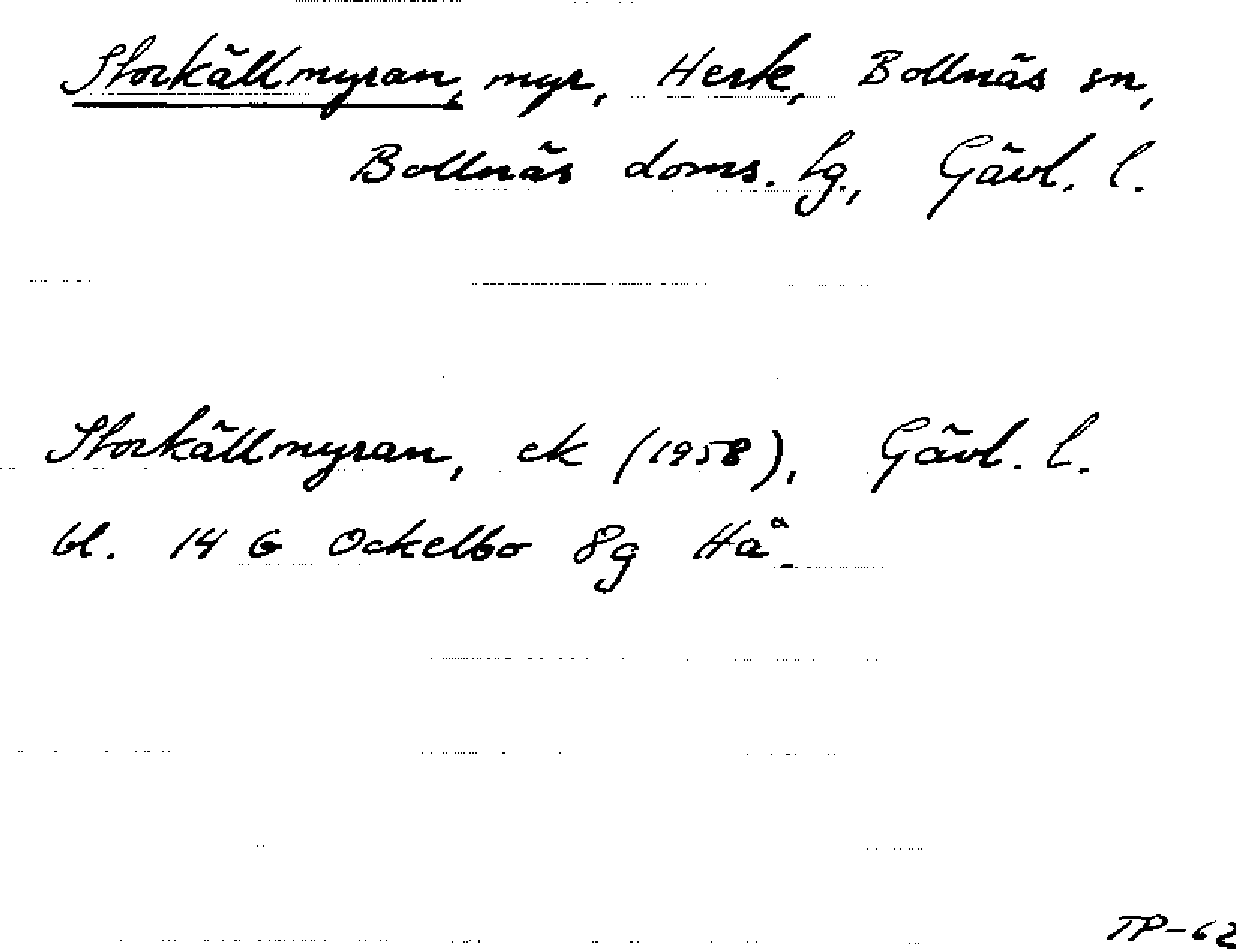 Storkällmyran, myr, Herte, Bollnäs sn,
Bollnäs doms. lg., Gävl. l.
Storkällmyran, ek (1958), Gävl. l.
bl. 14 G Ockelbo 8g Hå
TP-62